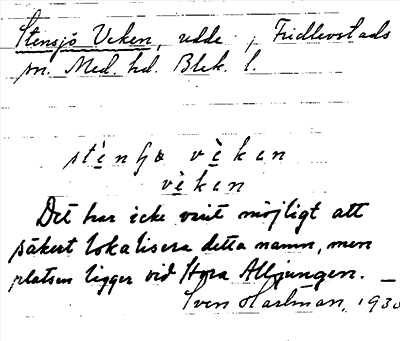 Stensjö Veken, udde, i Fridlevstads
sn. Med. hd. Blek. l.
vèken
vèken
Det har icke varit möjligt att
säkert lokalisera detta namn, men
platsen ligger vid Stora Alljungen. —
Sven Hartman, 193